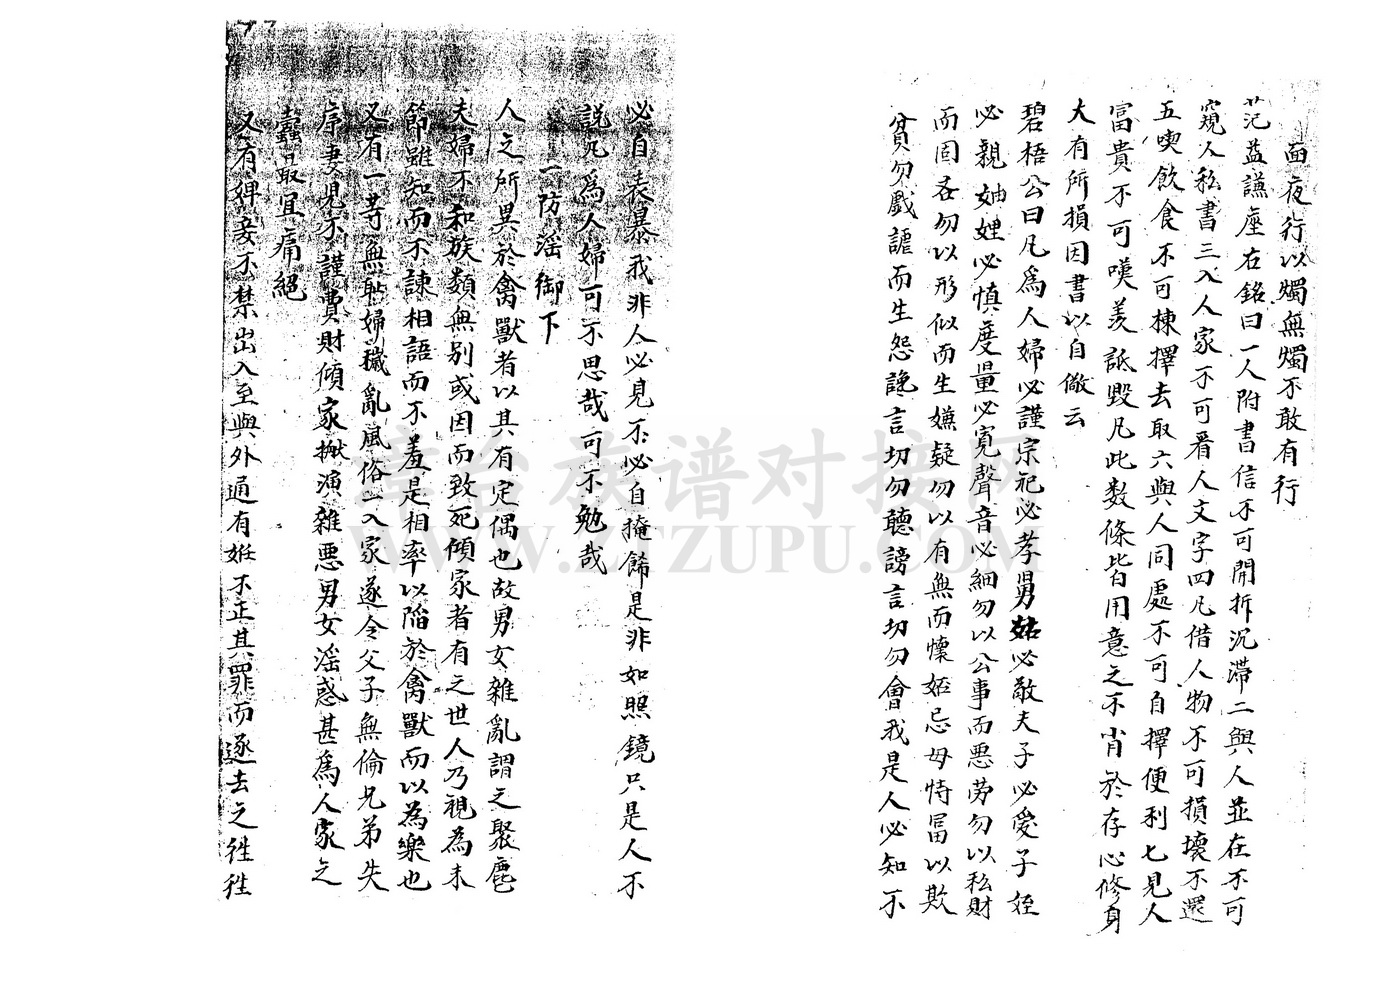 面夜行以燭無燭不敢有行
范益謙座右銘曰一人附書信不可開拆沉滯二與人並在不可
窺人私書三入人家不可看人文字四凡借人物不可損壞不還
五喫飲食不可揀擇去取六與人同處不可自擇便利七見人
富貴不可嘆羨詆毀凡此数條皆用意之不肖於存心修身
大有所損因書以自儆云
碧梧公曰凡爲人婦必謹宗祀必孝舅姑必敬夫子必愛子姪
必親妯娌必慎度量必寬聲音必細勿以公事而惡劳勿以私財
而固吝勿以形似而生嫌疑勿以有無而懷妬忌毋恃冨以欺
貧勿戲謔而生怨讒言切勿聽謗言切勿會我是人必知不
必自表暴我非人必見不必自掩餙是非如照鏡只是人不
説凡爲人婦可不思哉可不勉哉
一防滛御下
人之所異於禽獸者以其有定偶也故男女雜亂謂之聚麀
夫婦不和族類無别或因而致死傾家者有之世人乃視為末
節雖知而不諫相語而不羞是相率以陷於禽獸而以為樂也
又有一等無恥婦穢亂風俗一入家遂令父子無倫兄弟失
序妻児不謹費財傾家搬演雜惡男女滛惑甚爲人家之
蠹最宜痛絕
又有婢妾不禁出入至與外通有姙不正其罪而遂去之徃徃
喜台族谱对接网
WWW.ZTZUPU.COM